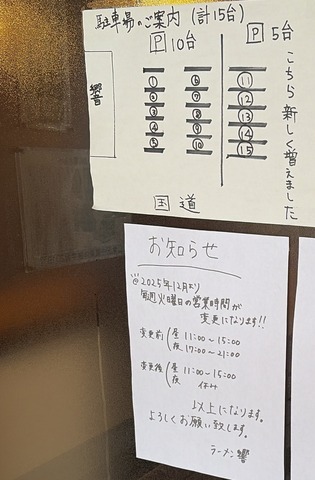 駐車場のご案内 (計15台)
P 10台
P 5台
こちら新しく増えました
響
① ⑥ ⑪
② ⑦ ⑫
③ ⑧ ⑬
④ ⑨ ⑭
⑤ ⑩ ⑮
国道
お知らせ
◎2025年12月より
毎週火曜日の営業時間が
変更になります!!
変更前 昼 11:00~15:00
夜 17:00~21:00
変更後 昼 11:00~15:00
夜 休み
以上になります。
よろしくお願い致します。
ラーメン響